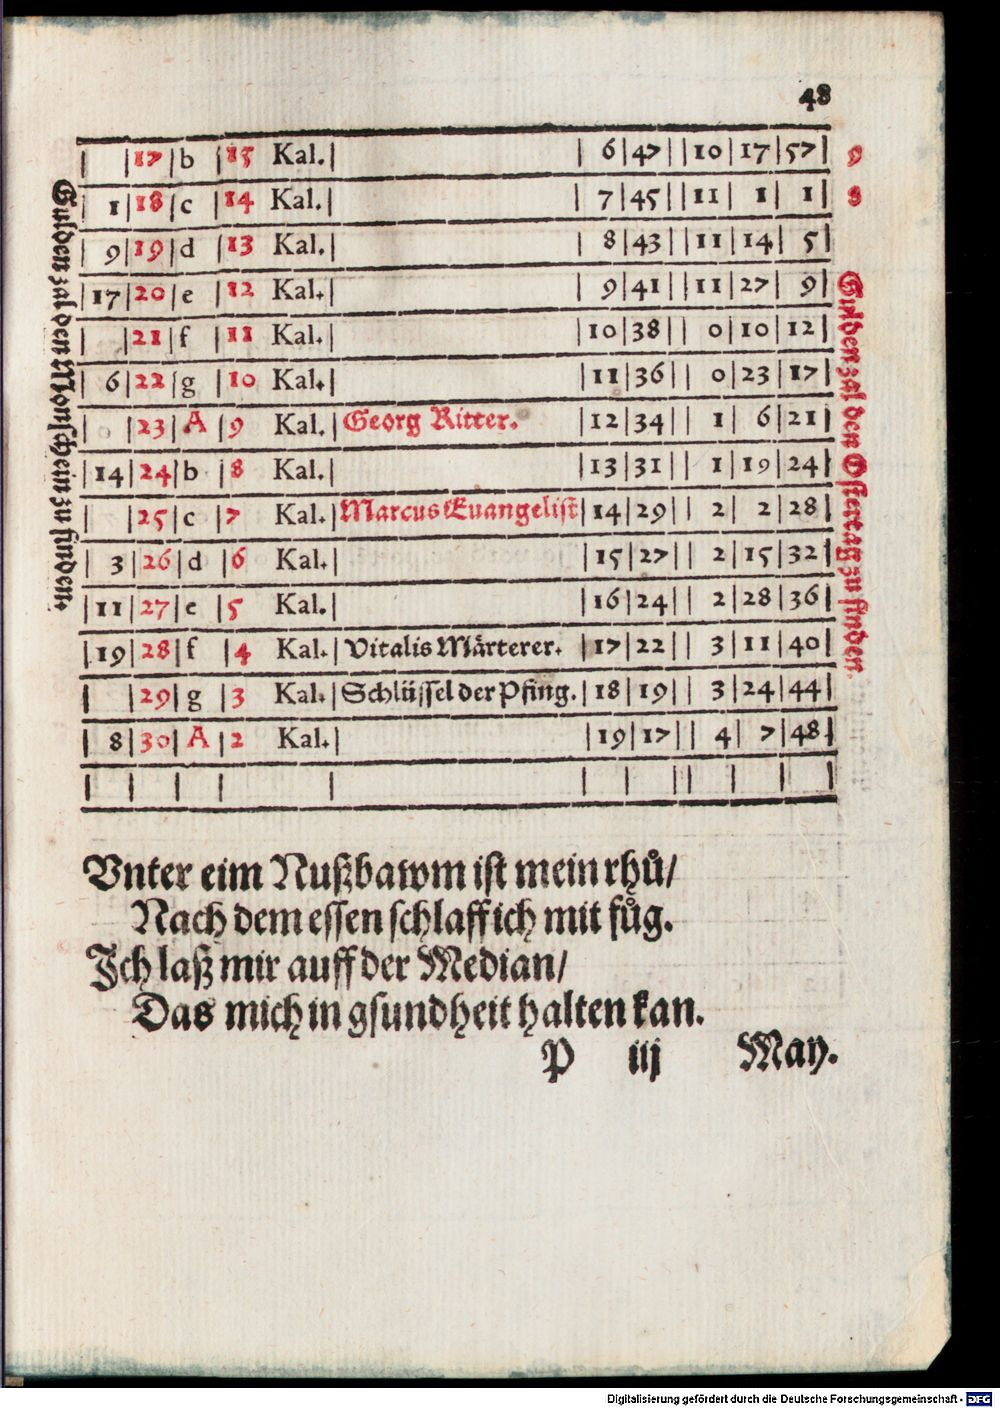 48
| | 17 | b | 15 Kal. | | 6 | 47 | | 10 | 17 | 57 | 9
| 1 | 18 | c | 14 Kal. | | 7 | 45 | | 11 | 1 | 1 | 8
| 9 | 19 | d | 13 Kal. | | 8 | 43 | | 11 | 14 | 5 |
| 17 | 20 | e | 12 Kal. | | 9 | 41 | | 11 | 27 | 9 |
| | 21 | f | 11 Kal. | | 10 | 38 | | 0 | 10 | 12 |
| 6 | 22 | g | 10 Kal. | | 11 | 36 | | 0 | 23 | 17 |
| | 23 | A | 9 Kal. | Georg Ritter. | 12 | 34 | | 1 | 6 | 21 |
| 14 | 24 | b | 8 Kal. | | 13 | 31 | | 1 | 19 | 24 |
| | 25 | c | 7 Kal. | Marcus Euangelist | 14 | 29 | | 2 | 2 | 28 |
| 3 | 26 | d | 6 Kal. | | 15 | 27 | | 2 | 15 | 32 |
| 11 | 27 | e | 5 Kal. | | 16 | 24 | | 2 | 28 | 36 |
| 19 | 28 | f | 4 Kal. | Vitalis Märterer. | 17 | 22 | | 3 | 11 | 40 |
| | 29 | g | 3 Kal. | Schlüssel der Pfing. | 18 | 19 | | 3 | 24 | 44 |
| 8 | 30 | A | 2 Kal. | | 19 | 17 | | 4 | 7 | 48 |
Gulden zal den Monschein zu finden.
Gulden zal den Ostertag zu finden.
Vnter eim Nußbawm ist mein rhů/
Nach dem essen schlaff ich mit fůg.
Jch laß mir auff der Median/
Das mich in gsundheit halten kan.
P iij May.
Digitalisierung gefördert durch die Deutsche Forschungsgemeinschaft - DFG